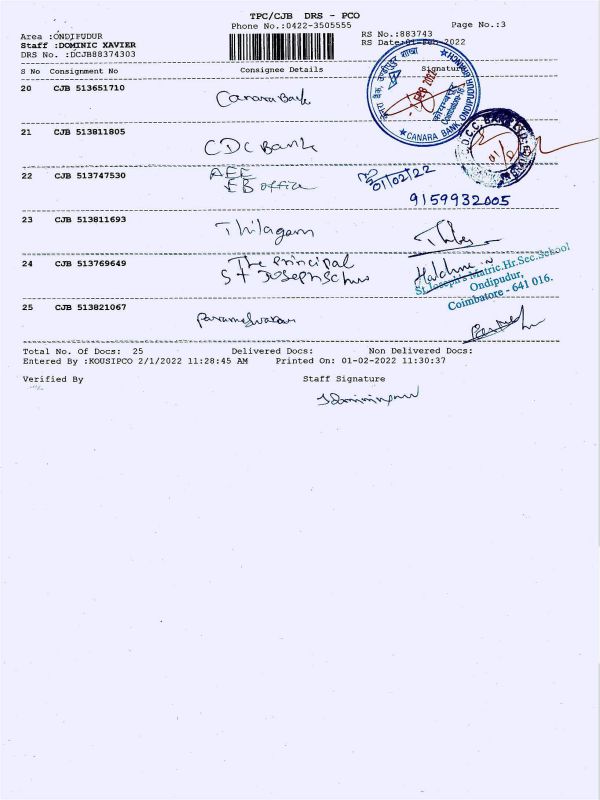 TPC/CJB DRS - PCO
Phone No.:0422-3505555
Page No.:3
Area :ONDIPUDUR
RS No.:883743
Staff :DOMINIC XAVIER
RS Date:01-Feb-2022
DRS No. :DCJB88374303
S No Consignment No Consignee Details Signature
20 CJB 513651710 Canara Bank
CANARA BANK, ONDIPUDUR
21 CJB 513811805 CDC Bank
22 CJB 513747530 AEE
EB office
01/02/22
9159932005
23 CJB 513811693 Thilagam
24 CJB 513769649 The Principal
St Joseph
St.Joseph's Matric.Hr.Sec.School
Ondipudur,
Coimbatore - 641 016.
25 CJB 513821067 Parameshwaran
Total No. Of Docs: 25 Delivered Docs: Non Delivered Docs:
Entered By :KOUSIPCO 2/1/2022 11:28:45 AM Printed On: 01-02-2022 11:30:37
Verified By Staff Signature